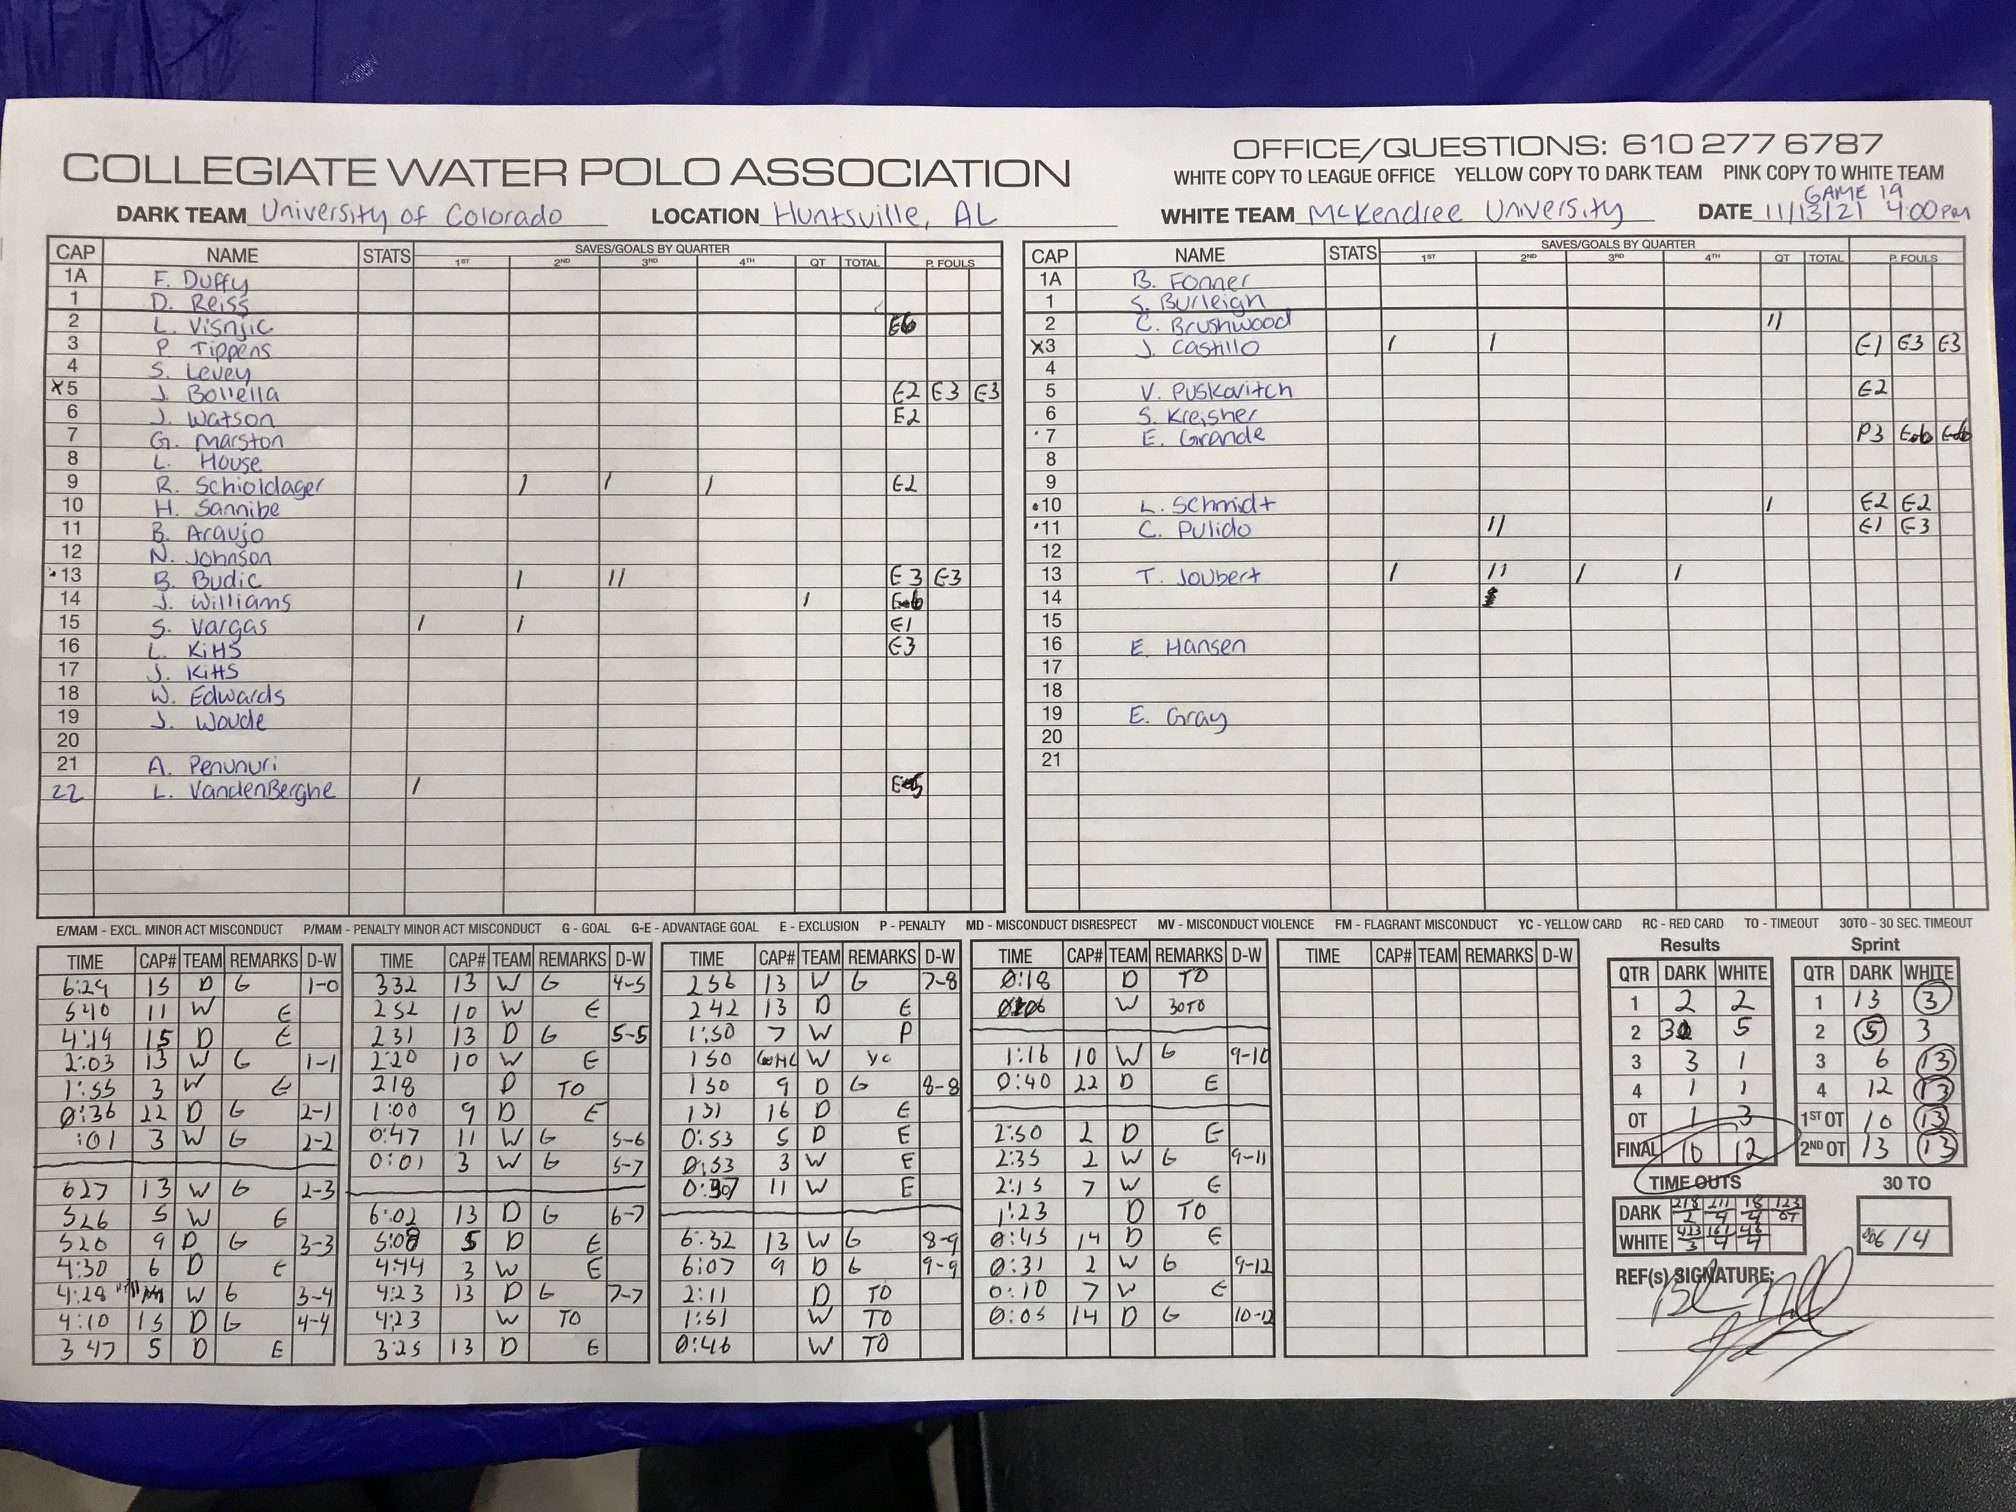 COLLEGIATE WATER POLO ASSOCIATION
OFFICE/QUESTIONS: 610 277 6787
WHITE COPY TO LEAGUE OFFICE YELLOW COPY TO DARK TEAM PINK COPY TO WHITE TEAM
GAME 19
DARK TEAM University of Colorado LOCATION Huntsville, AL
WHITE TEAM McKendree University DATE 11/13/21 4:00pm
CAP NAME STATS SAVES/GOALS BY QUARTER 1ST 2ND 3RD 4TH QT TOTAL P. FOULS
1A F. Duffy
1 D. Reiss
2 L. Visnjic
3 P. Tippens
4 S. Levey
x5 J. Bollella E2 E3 E3
6 J. Watson E2
7 G. Marston
8 L. House
9 R. Schioldager / / / E2
10 H. Sannibe
11 B. Araujo
12 N. Johnson
·13 B. Budic / // E3 E3
14 J. Williams /
15 S. Vargas / / E1
16 L. Kitts E3
17 J. Kitts
18 W. Edwards
19 J. Woude
20
21 A. Penunuri
22 L. VandenBerghe /
CAP NAME STATS SAVES/GOALS BY QUARTER 1ST 2ND 3RD 4TH QT TOTAL P. FOULS
1A B. Fonner
1 S. Burleigh
2 C. Brushwood //
x3 J. Castillo / / E1 E3 E3
4
5 V. Puskavitch E2
6 S. Kreisher
·7 E. Grande P3
8
9
·10 L. Schmidt / E2 E2
·11 C. Pulido // E1 E3
12
13 T. Joubert / // / /
14
15
16 E. Hansen
17
18
19 E. Gray
20
21
E/MAM - EXCL. MINOR ACT MISCONDUCT P/MAM - PENALTY MINOR ACT MISCONDUCT G - GOAL G-E - ADVANTAGE GOAL E - EXCLUSION P - PENALTY MD - MISCONDUCT DISRESPECT MV - MISCONDUCT VIOLENCE FM - FLAGRANT MISCONDUCT YC - YELLOW CARD RC - RED CARD TO - TIMEOUT 30TO - 30 SEC. TIMEOUT
TIME CAP# TEAM REMARKS D-W
6:29 15 D G 1-0
540 11 W E
4:19 15 D E
2:03 13 W G 1-1
1:55 3 W E
0:36 22 D G 2-1
:01 3 W G 2-2
627 13 W G 2-3
526 5 W E
520 9 D G 3-3
4:30 6 D E
4:28 W G 3-4
4:10 15 D G 4-4
3 47 5 D E
TIME CAP# TEAM REMARKS D-W
332 13 W G 4-5
252 10 W E
231 13 D G 5-5
2:20 10 W E
218 D TO
1:00 9 D E
0:47 11 W G 5-6
0:01 3 W G 5-7
6:02 13 D G 6-7
5:08 5 D E
4:44 3 W E
4:23 13 D G 7-7
4:23 W TO
3:25 13 D E
TIME CAP# TEAM REMARKS D-W
256 13 W G 7-8
242 13 D E
1:50 7 W P
150 W YC
150 9 D G 8-8
131 16 D E
0:53 5 D E
0:53 3 W E
0:37 11 W E
6:32 13 W G 8-9
6:07 9 D G 9-9
2:11 D TO
1:51 W TO
0:46 W TO
TIME CAP# TEAM REMARKS D-W
0:18 D TO
W 30TO
1:16 10 W G 9-10
0:40 22 D E
2:50 2 D E
2:35 2 W G 9-11
2:15 7 W E
1:23 D TO
0:45 14 D E
0:31 2 W G 9-12
0:10 7 W E
0:05 14 D G 10-12
TIME CAP# TEAM REMARKS D-W
Results
QTR DARK WHITE
1 2 2
2 3 5
3 3 1
4 1 1
OT 1 3
FINAL 10 12
Sprint
QTR DARK WHITE
1 13 3
2 5 3
3 6 13
4 12 13
1ST OT 10 13
2ND OT 13 13
TIME OUTS
DARK 218/2 211/4 18/4 123/OT
WHITE 423/3 151/4 46/4
30 TO
06/4
REF(s) SIGNATURE: